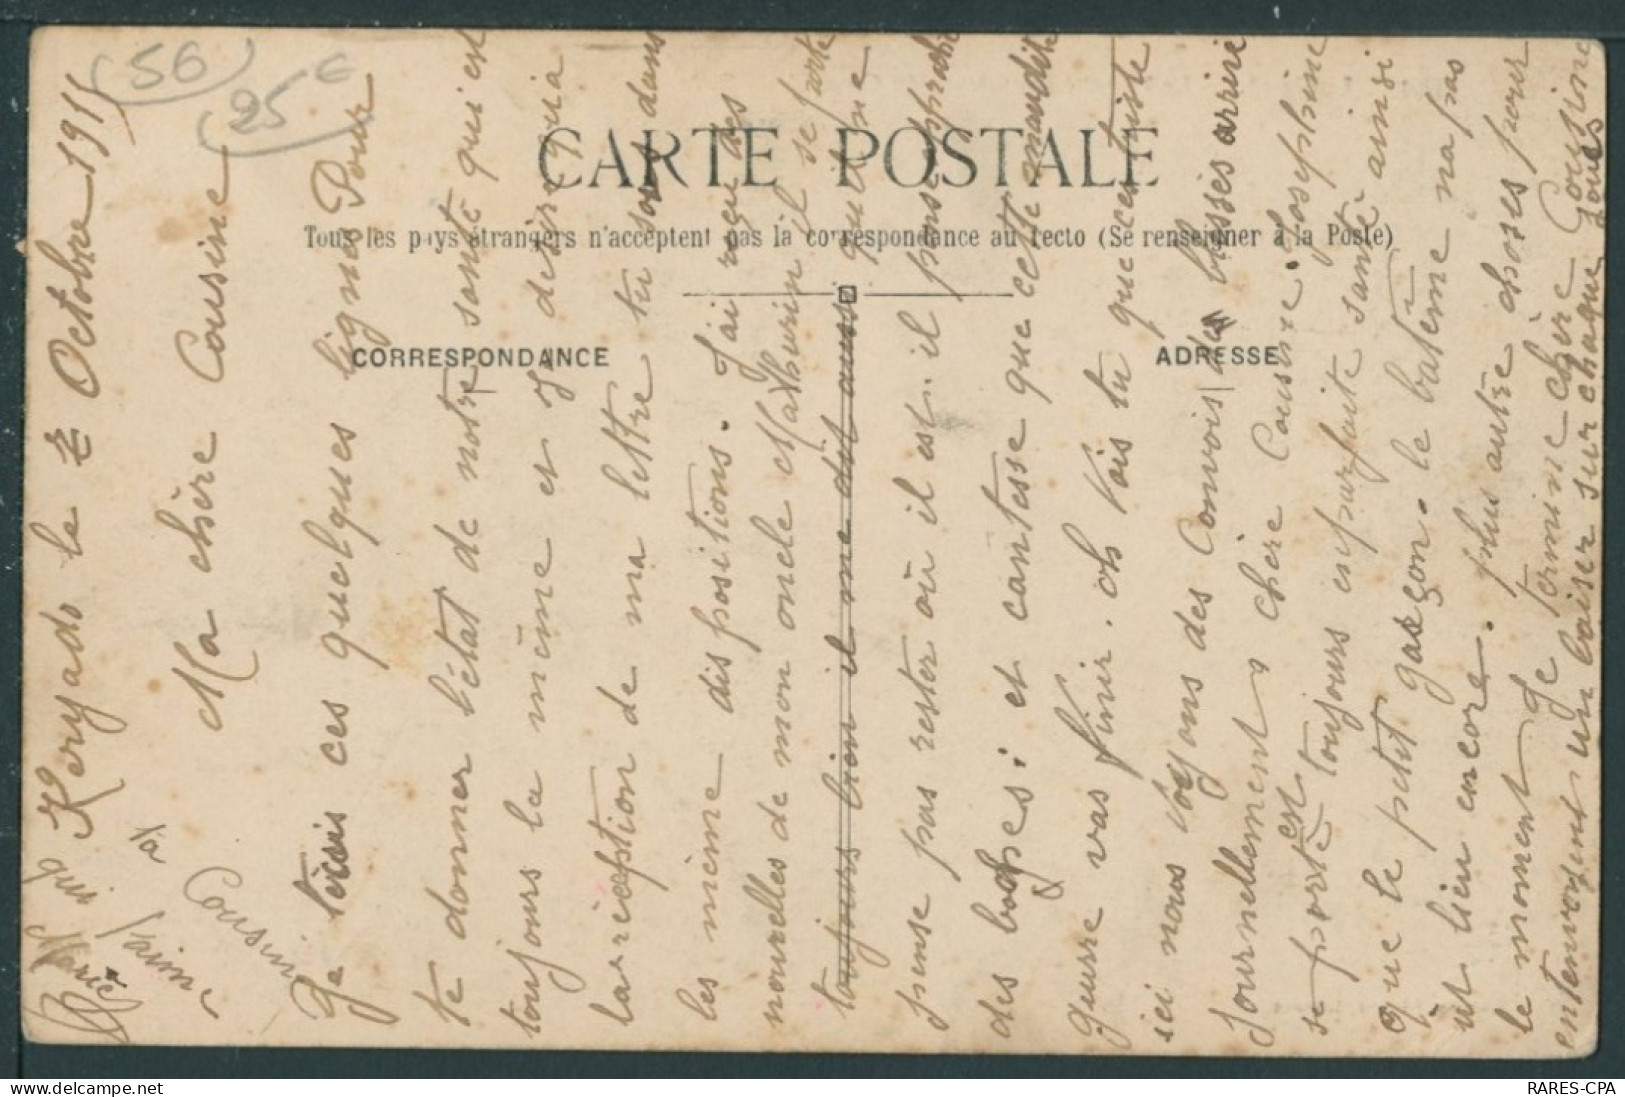 56
25 €
CARTE POSTALE
Tous les pays étrangers n'acceptent pas la correspondance au recto (Se renseigner à la Poste)
CORRESPONDANCE
ADRESSE
Keryado le 2 Octobre 1915
Ma chère Cousine
Je ces quelques lignes Pour
te donner l'état de notre santé qui est
toujours la même et je désire qu'a
la réception de ma lettre tu sois dans
les même dispositions. J'ai reçu des
nouvelles de mon oncle Mathurin il se porte
toujours bien il me dit qu'il ne
pense pas rester où il est. il pense prendre
des boches; et contesse que cette maudite
guerre vas finir. oh vois tu que ces triste
ici nous voyons des convois de blessés arrivé
Journellement chère Cousine. Josephine
se porte est toujours en parfaite santé ainsi
que le petit garçon. le batême na pas
ut lieu encore. plus autre choses pour
le moment Je termine chère Cousine
en tenvoyent un baiser sur chaque joues
Ta Cousine
qui t'aime
Marie
RARES-CPA